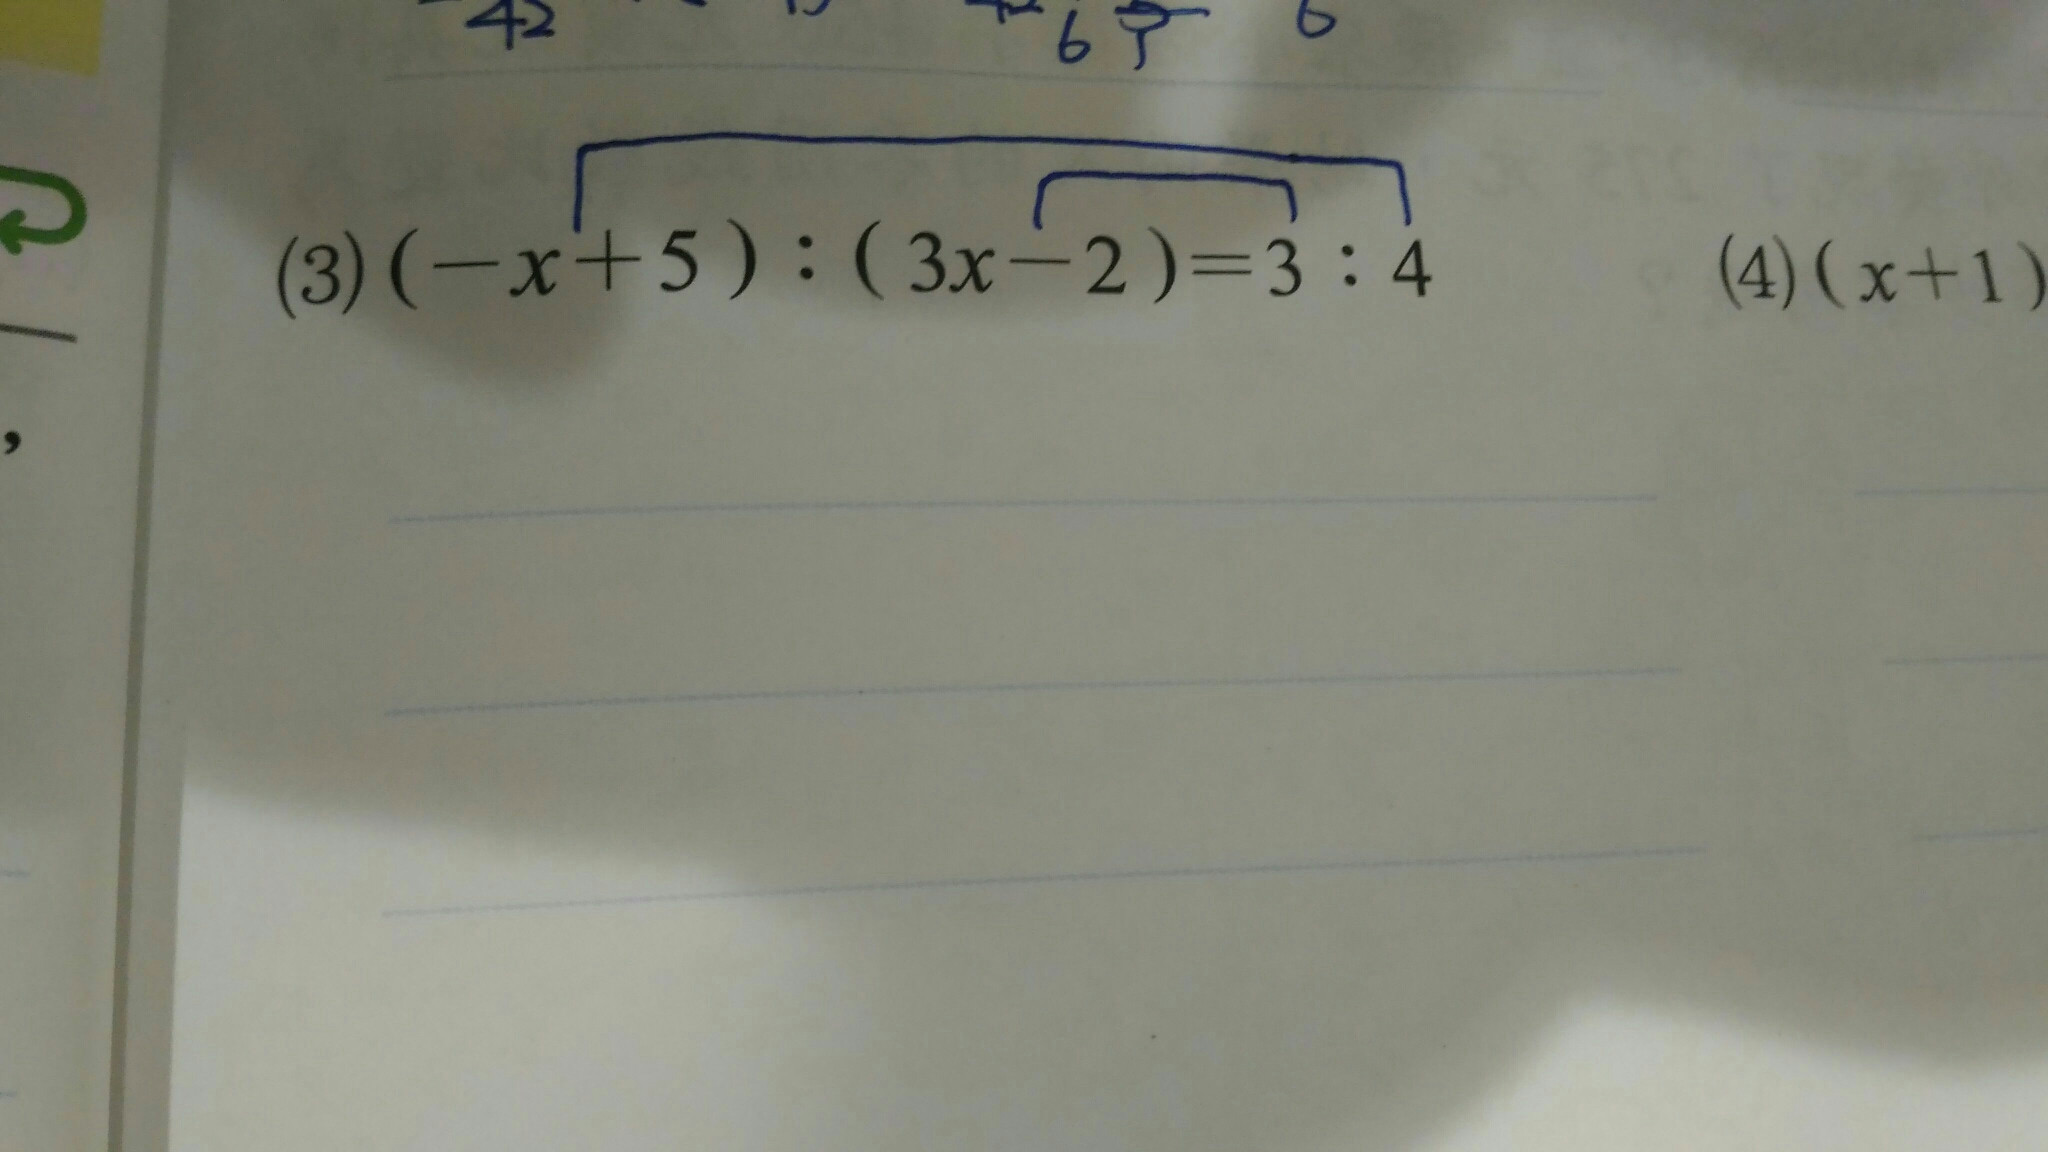 42 6 5 6
(3) (-x+5) : (3x-2)=3 : 4 (4) (x+1)
,